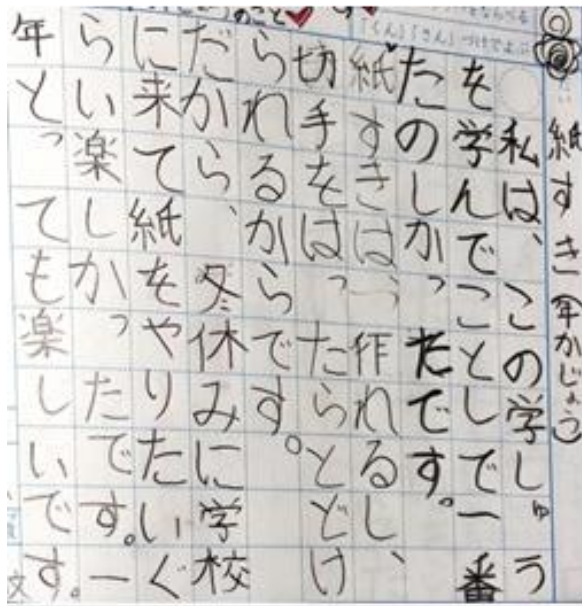 のこと
す
をならべる
「くん」「さん」づけでよぶ
紙すき(年かじょう)
私は、この学しゅう
を学んでことしで一番
たのしかったです。
紙すきは、作れるし、
切手をはったらとどけ
られるからです。
だから、冬休みに学校
に来て紙をやりたいぐ
らい楽しかったです。一
年とっても楽しいです。